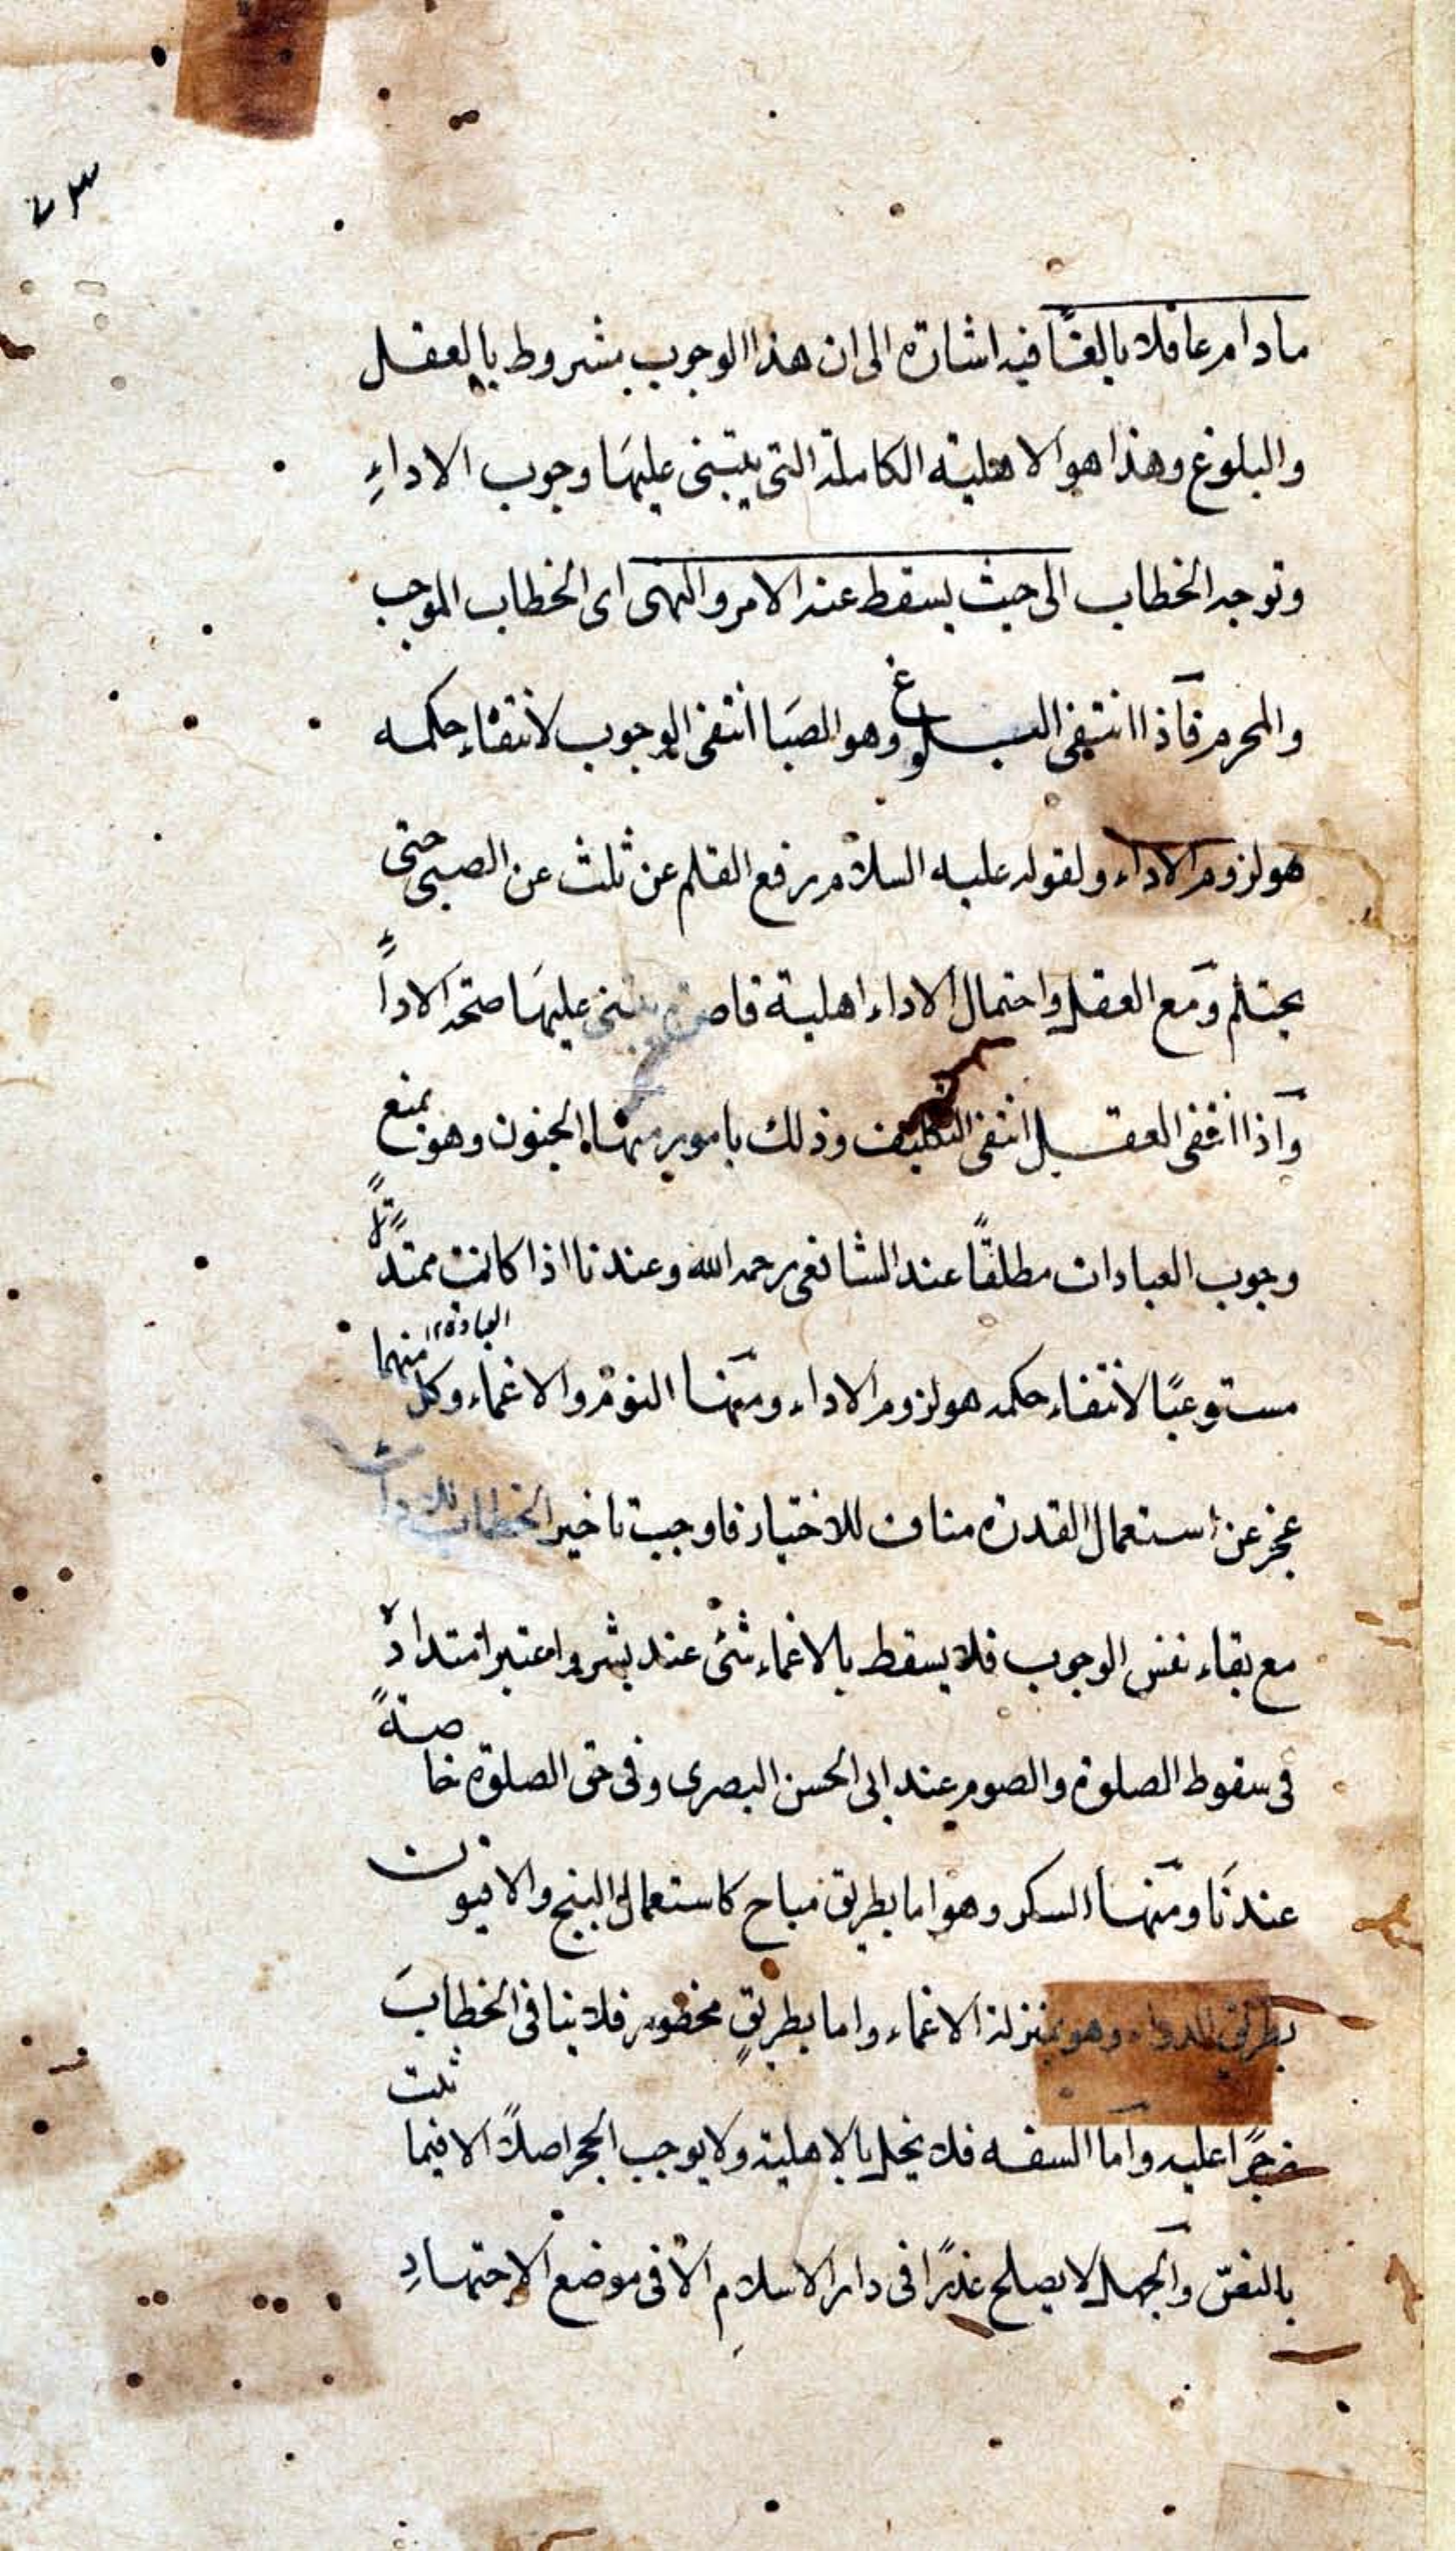 ٧٣
مادام عاقلا بالغًا فيه اشارة الى ان هذا الوجوب مشروط بالعقل
والبلوغ وهذا هو الاهلية الكاملة التى يبتنى عليهَا وجوب الاداءِ
وتوجه الخطاب الى حيث يسقط عنه الامر والنهى اى الخطاب الموجب
والمحرم فآذا انتفى البلوغ وهو الصَبا انتفى الوجوب لانتفاءِ حكمه
هو لزوم الاداء ولقوله عليه السلام رفع القلم عن ثلث عن الصبى حتى
يحتلم ومع العقل واحتمال الاداء اهلية قاصرة يبتنى عليهَا صحة الاداءً
وآذا انتفى العقل انتفى التكليف وذلك بامور منها الجنون وهو يمنع
وجوب العبادات مطلقًا عند الشافعى رحمه الله وعندنا اذا كانت ممتدًّا
مستوعبًا لانتفاء حكمه هو لزوم الاداء ومنها النوم والاغماء وكل منهما
العبادة ١٢
عجز عن استعمال القدرة مناف للاختيار فاوجب تاخير الخطاب
مع بقاء نفس الوجوب فلا يسقط بالاغماء شئ عند بشر واعتبر امتداده
فى سقوط الصلوة والصوم عند ابى الحسن البصرى وفى حق الصلوة خاصةً
عندنَا ومنهَا السكر وهو اما بطريق مباح كاستعمال البنج والافيون
بطريق الدواء وهو بمنزلة الاغماء واما بطريقٍ محظور فلا ينافى الخطابَ
زجرًا عليه واما السفه فلا يخل بالاهلية ولا يوجب الحجر اصلاً الا فيما ثبت
بالنصّ والجهل لا يصلح عذرًا فى دار الاسلامِ الا فى موضع الاجتهادِ